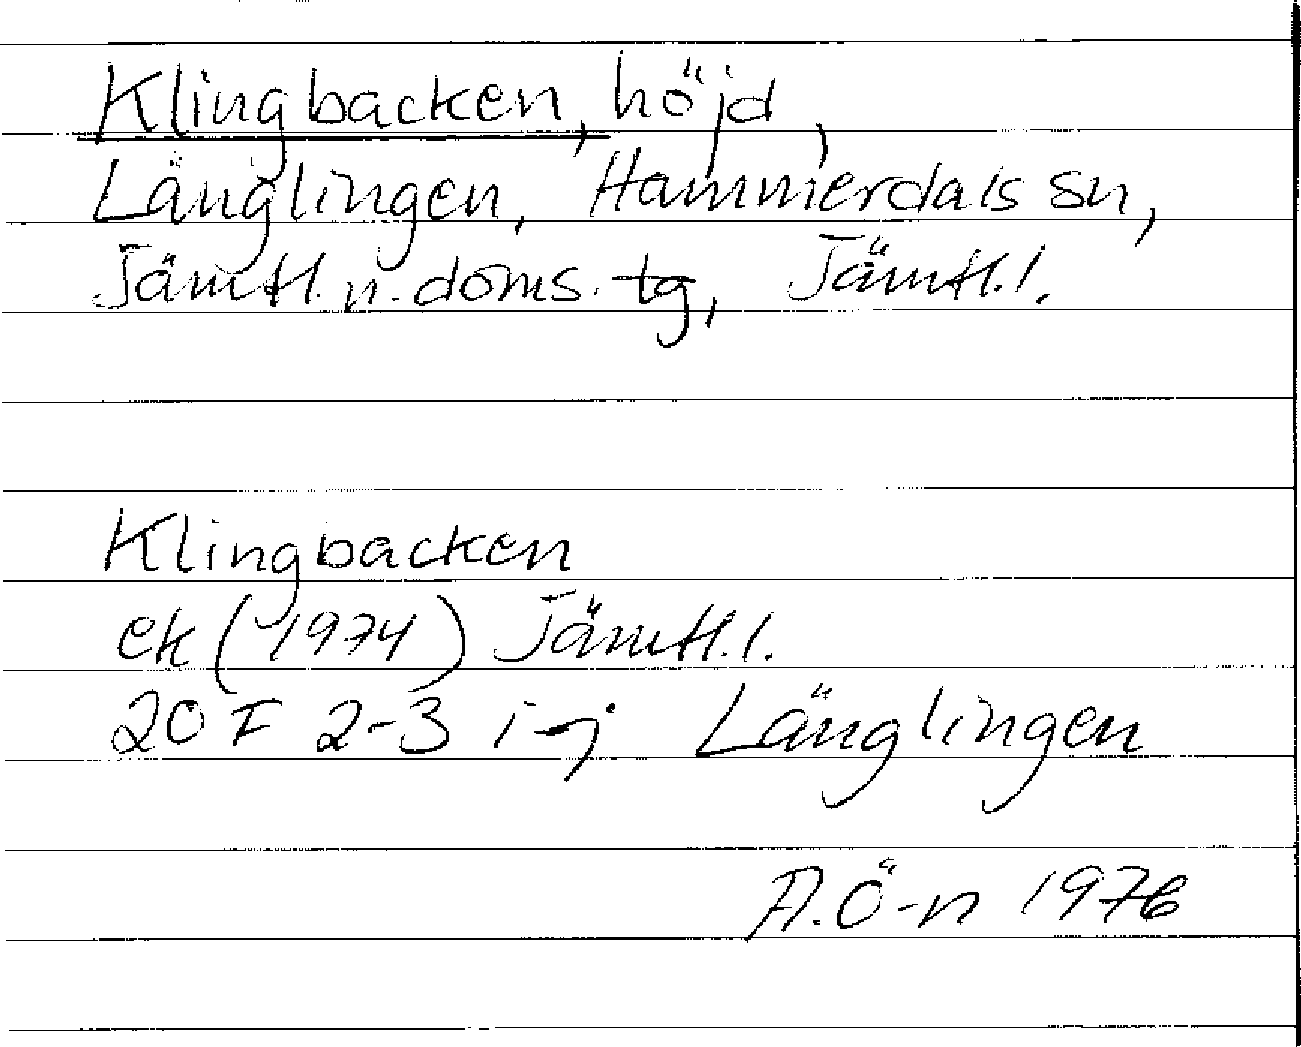 Klingbacken, höjd,
Länglingen, Hammerdals sn,
Jämtl. n. doms. tg, Jämtl. l.
Klingbacken
ek (1974) Jämtl. l.
20 F 2-3 i-j Länglingen
A. Ö-n 1976